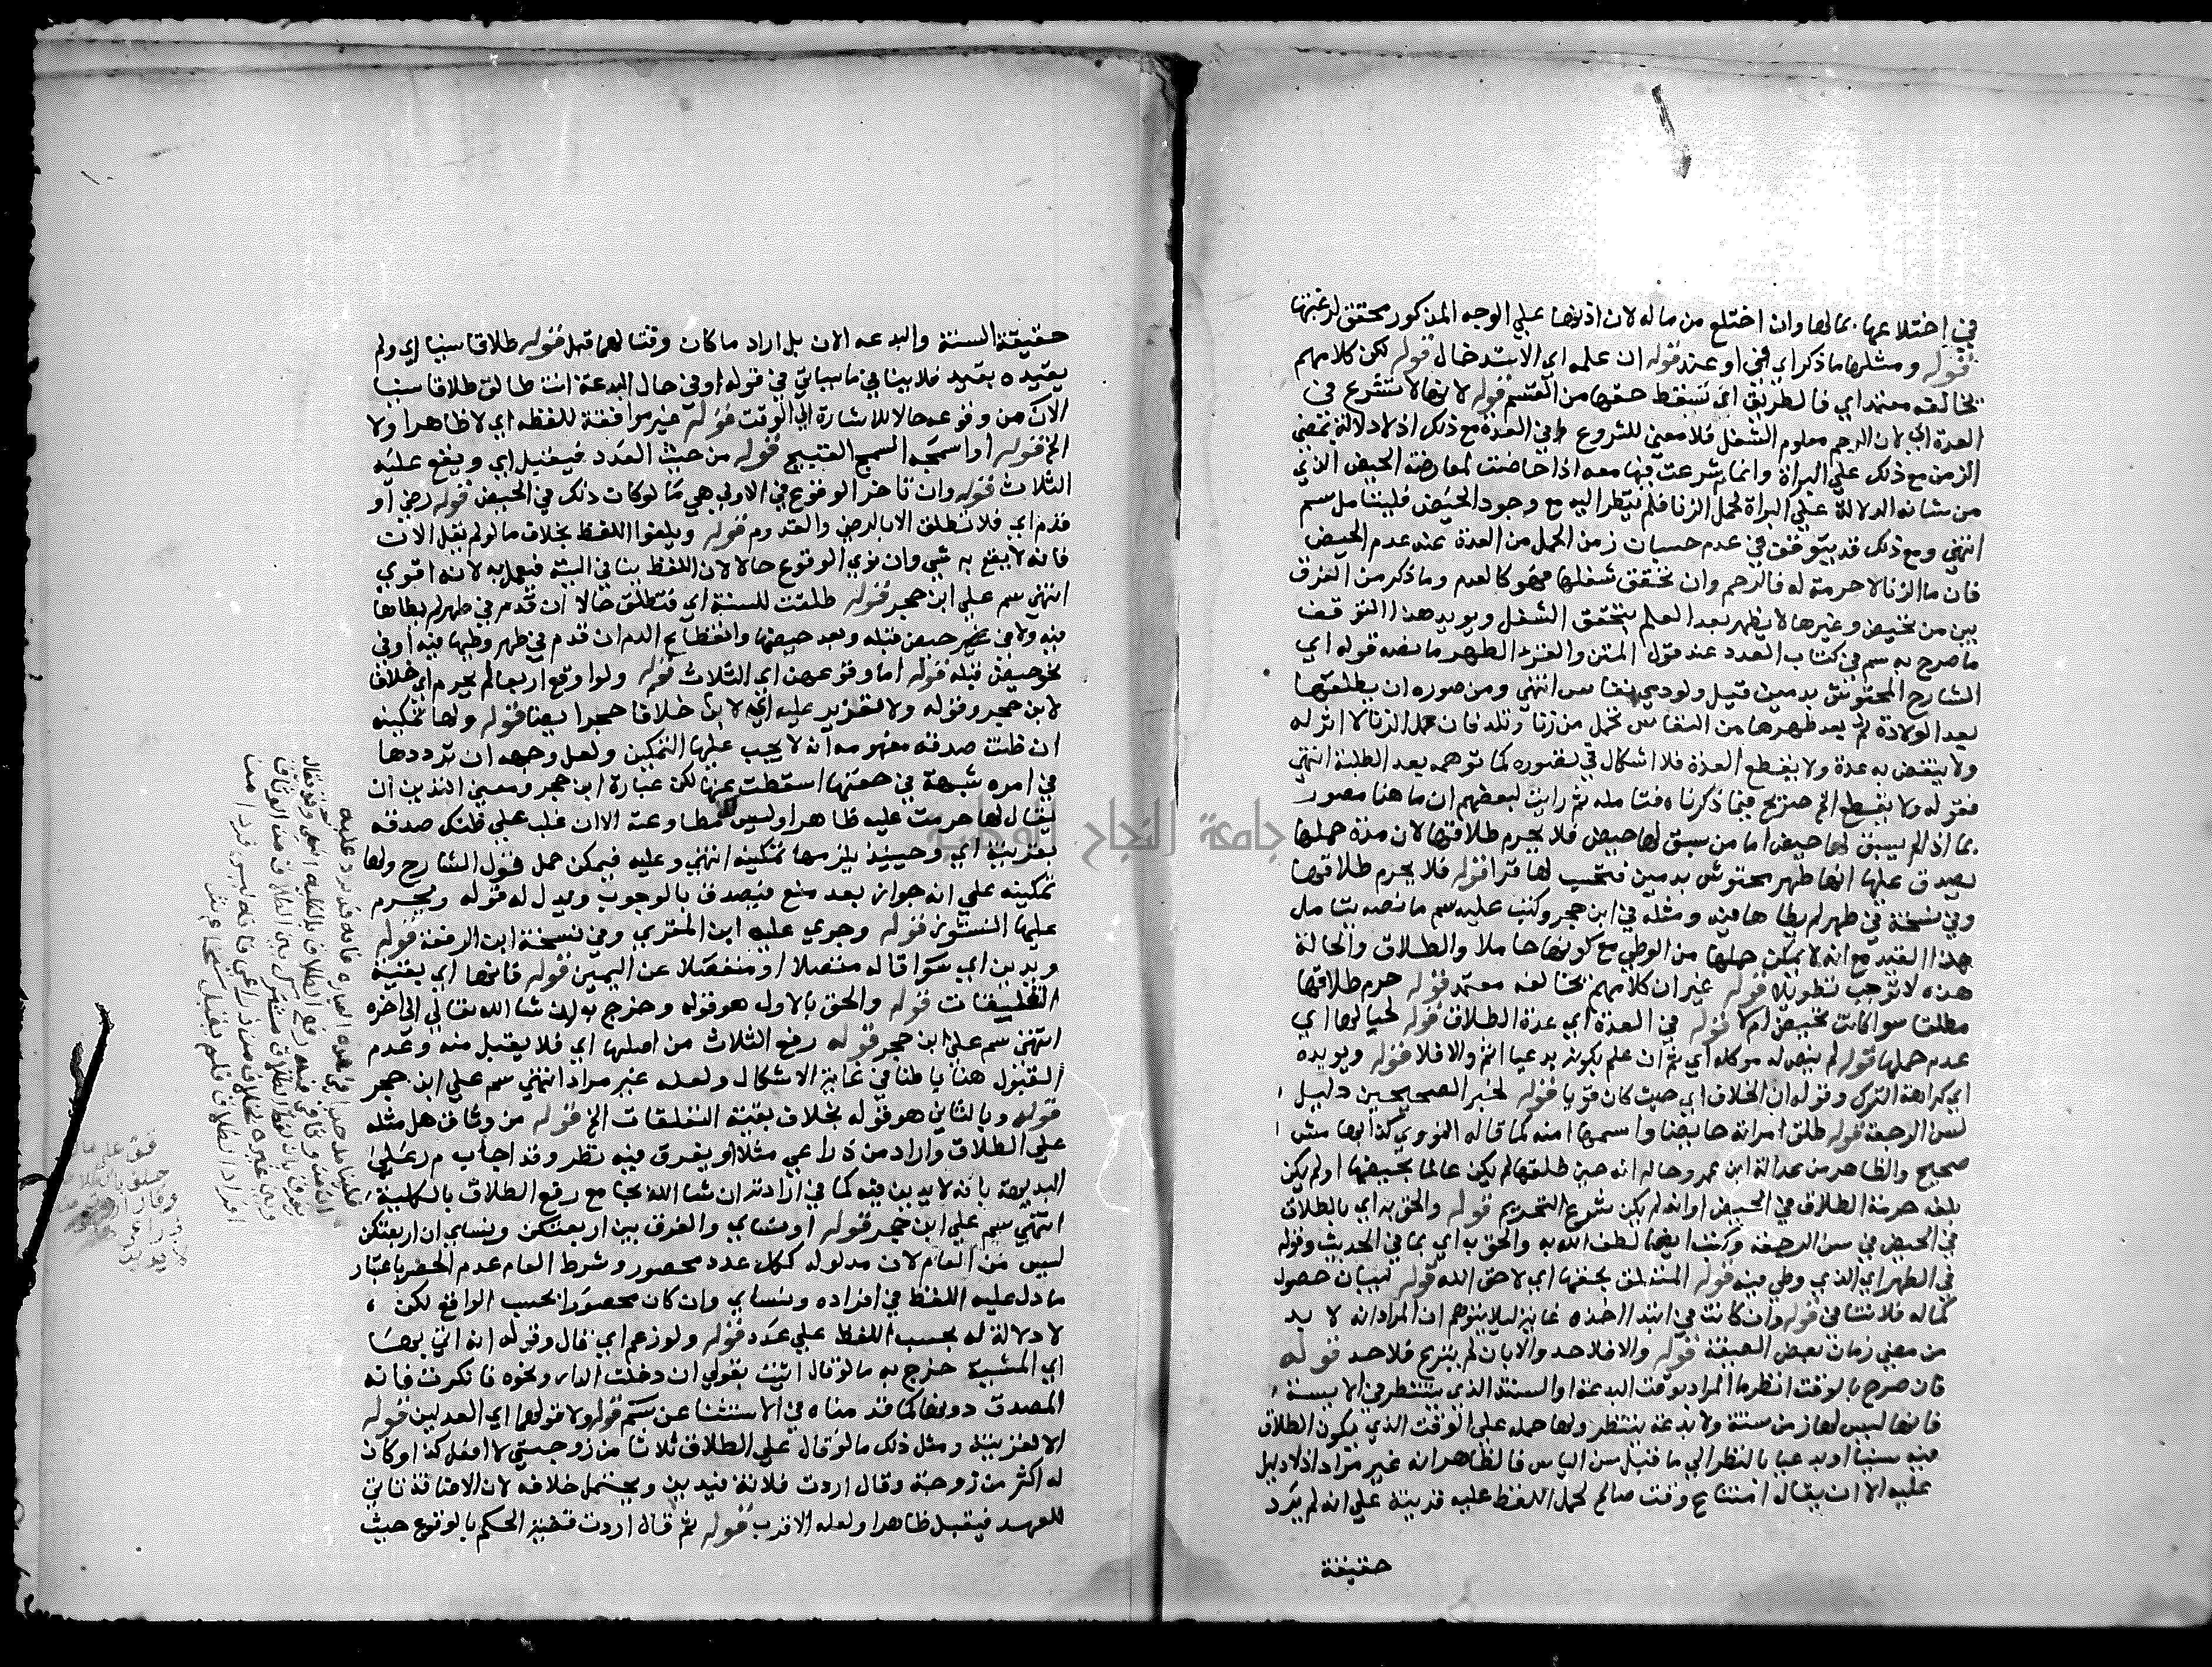 في اختلاعها بمالها وان اختلع من ماله لان اذنها علي الوجه المذكور محقق لرغبتها
قوله ومثلها ما ذكر اي في او عند قوله ان علمه اي الاستدخال قوله لكن كلامهم
يخالفه معتمد اي فالطريق اي تسقط حقها من القسم قوله لانها لا تشرع في
العدة اي لان الرحم معلوم الشغل فلا معني للشروع في العدة مع ذلك اذ لا دلالة بمضي
الزمن مع ذلك علي البراة وانما شرعت فيها معه اذا حاضت لمعارضة الحيض الذي
من شانه الدلالة علي البراة لحمل الزنا فلم ينظر اليه مع وجود الحيض فليتامل سم
انتهي ومع ذلك قد يتوقف في عدم حسبان زمن الحمل من العدة عند عدم الحيض
فان ما الزنا لا حرمة له فالرحم وان تحقق شغلها فهو كالعدم وما ذكر من الفرق
بين من تحيض وغيرها لا يظهر بعد العلم بتحقق الشغل ويويد هذا التوقف
ما صرح به سم في كتاب العدد عند قول المتن والقرء الطهر ما نصه قوله اي
الشارح المحتوش بدمين قيل ولو دمي نفاس انتهي ومن صوره ان يطلقها
بعد الولادة ثم بعد طهرها من النفاس تحمل من زنا وتلد فان حمل الزنا لا اثر له
ولا ينقض به عدة ولا يقطع العدة فلا اشكال في تصوره كما توهمه بعد الطلبة انتهي
فقوله ولا يقطع الخ صريح فيما ذكرناه فتامله ثم رايت لبعضهم ان ما هنا مصور
بما اذا لم يسبق لها حيض اما من سبق لها حيض فلا يحرم طلاقها لان مدة حملها
يصدق عليها انها طهر محتوش بدمين فتحسب لها قرا قوله فلا يحرم طلاقها
وفي نسخة في طهر لم يطاها فيه ومثله في ابن حجر وكتب عليه سم ما نصه يتامل
هذا القيد مع انه لا يمكن حملها من الوطي مع كونها حاملا والطلاق والحالة
هذه لا توجب تطويلا قوله غير ان كلامهم يخالفه معتمد قوله حرم طلاقها
مطلقا سوا كانت تحيض ام لا قوله في العدة اي عدة الطلاق قوله لحيالها اي
عدم حملها قوله لم ينص له موكله اي ثم ان علم بكونه بدعيا اثم والا فلا قوله ويويده
اي كراهة الترك وقوله ان الخلاف اي حيث كان قويا قوله لخبر الصحيحين دليل
لسن الرجعة قوله طلق امراته حايضا واسمها امنه كما قاله النووي
صحيح والظاهر من عدالة ابن عمر وحاله انه حين طلقها لم يكن عالما بحيضها او لم يكن
بلغه حرمة الطلاق في الحيض او انه لم يكن شرع التحريم قوله والحق به اي بالطلاق
في الحيض في سن الرجعة وكتب ايضا لطف الله به والحق به اي بما في الحديث وقوله
في الطهر اي الذي وطي فيه قوله المتعلق بحقها اي لا حق الله قوله لبيان حصول
كماله فلا تنافي قوله وان كانت في ابتدا اخذه غاية ليلا يتوهم ان المراد انه لا بد
من مضي زمان بعض الصيغة قوله والا فلا حد والا بان لم ينزع فلا حد قوله
فان صرح بالوقت انظر ما المراد بوقت البدعة او السنة الذي ينتظر في الايسة
فانها ليس لها زمن سنة ولا بدعة ينتظر ولها حمله علي الوقت الذي يكون الطلاق
فيه سنيا او بدعيا بالنظر الي ما قبل سن الياس فالظاهر انه غير مراد اذ لا دليل
عليه الا ان يقال امتناع وقت صالح لحمل اللفظ عليه قرينة علي انه لم يرد
حقيقة
حقيقة السنة والبدعه الان بل اراد ما كان وقتا لهما قبل قوله طلاقا سنيا اي ولم
يقيده بقيد فلا ينافي ما سياتي في قوله او في حال البدعة انت طالق طلاقا سنيا
الان من وقوعه حالا للاشارة الي الوقت قوله غير موافقة للفظه اي لا ظاهرا ولا
الخ قوله او اسمجه السمج القبيح قوله من حيث العدد فيقبل اي ويقع عليه
الثلاث قوله وان تاخر الوقوع في الاولي هي ما لو كان ذلك في الحيض قوله رضي او
قدم اي فلا تطلق الا بالرضي والقدوم قوله ويلغوا اللفظ بخلاف ما لو لم يقل الان
فانه لا يقع به شي وان نوي الوقوع حالا لان اللفظ ينافي النية فيعمل به لانه اقوي
انتهي سم علي ابن حجر قوله طلقت للسنة اي فتطلق حالا ان قدم في طهر لم يطاها
فيه ولا في نحو حيض قبله وبعد حيضها وانقطاع الدم ان قدم في طهر وطيها فيه او في
نحو حيض قبله قوله اما وقوعهن اي الثلاث قوله ولو اوقع اربعا لم يحرم اي خلافا
لابن حجر وقوله ولا تعزير عليه اي لابن خلافا حجر ايضا قوله ولها تمكينه
ان ظنت صدقه مفهومه انه لا يجب عليها التمكين ولعل وجهه ان ترددها
في امره شبهة في حقها اسقطت عنها لكن عبارة ابن حجر ومعني التديين ان
يقال لها حرمت عليه ظاهرا وليس لك مطاوعته الا ان غلب علي ظنك صدقه
بقرينة اي وحينيذ يلزمها تمكينه انتهي وعليه فيمكن حمل قول الشارح ولها
تمكينه علي انه جواز بعد منع فيصدق بالوجوب ويدل له قوله ويحرم
عليها النشوز قوله وجري عليه ابن المقري وفي نسخة ابن الرفعة قوله
ويدين اي سوا قاله متصلا او منفصلا عن اليمين قوله فانها اي بقية
التعليقات قوله والحق بالاول هو قوله وخرج به ان شا الله تعالي الي اخره
انتهي سم علي ابن حجر قوله رفع الثلاث من اصلها اي فلا يقبل منه وعدم
القبول هنا باطنا في غاية الاشكال ولعله غير مراد انتهي سم علي ابن حجر
قوله وبالثاني هو قوله بخلاف بقية التعلقات الخ قوله من وثاق هل مثله
علي الطلاق واراد من ذراعي مثلا او يفرق فيه نظر وقد اجاب م ر علي
البديهة بانه لا يدين فيه كما في ارادته ان شا الله بجامع رفع الطلاق بالكلية
انتهي سم علي ابن حجر قوله او نساي والفرق بين اربعتكن ونساي ان اربعتكن
ليس من العام لان مدلوله ككل عدد محصور وشرط العام عدم الحصر باعتبار
ما دل عليه اللفظ في افراده ونساي وان كان محصورا بحسب الواقع لكن
لا دلالة له بحسب اللفظ علي عدد قوله ولو زعم اي قال وقوله انه اتي بها
اي المشية خرج به ما لو قال اتيت بقولي ان دخلت الدار ونحوه فانكرت فانه
المصدق دونها كما قدمناه في الاستثنا عن سم قوله ولا قولهما اي العدلين قوله
الا لقرينة ومثل ذلك ما لو قال علي الطلاق ثلاثا من زوجتي لا افعل كذا وكان
له اكثر من زوجة وقال اردت فلانة فيدين ويحتمل خلافه لان الاضافة تاتي
للعهد فيقبل ظاهرا ولعله الاقرب قوله ثم قال اردت قضية الحكم بالوقوع حيث
جامعة النجاح الوطنية